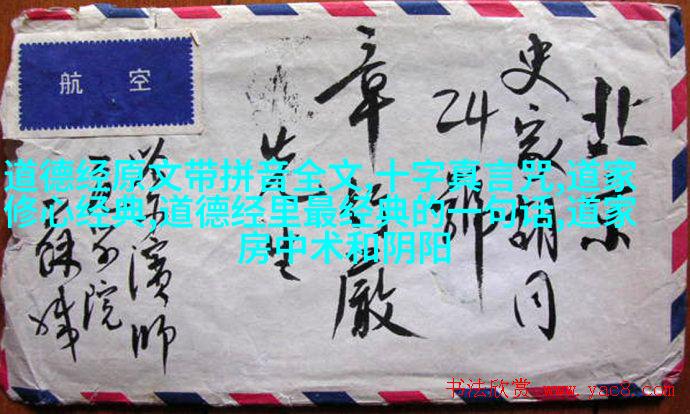 航空
北京
史家胡同
24号
章行严
先生
哈尔滨师
院
道德经原文带拼音全文,十字真言咒,道家
修心经典,道德经里最经典的一句话,道家
房中术和阴阳
书法欣赏 www.yac8.com